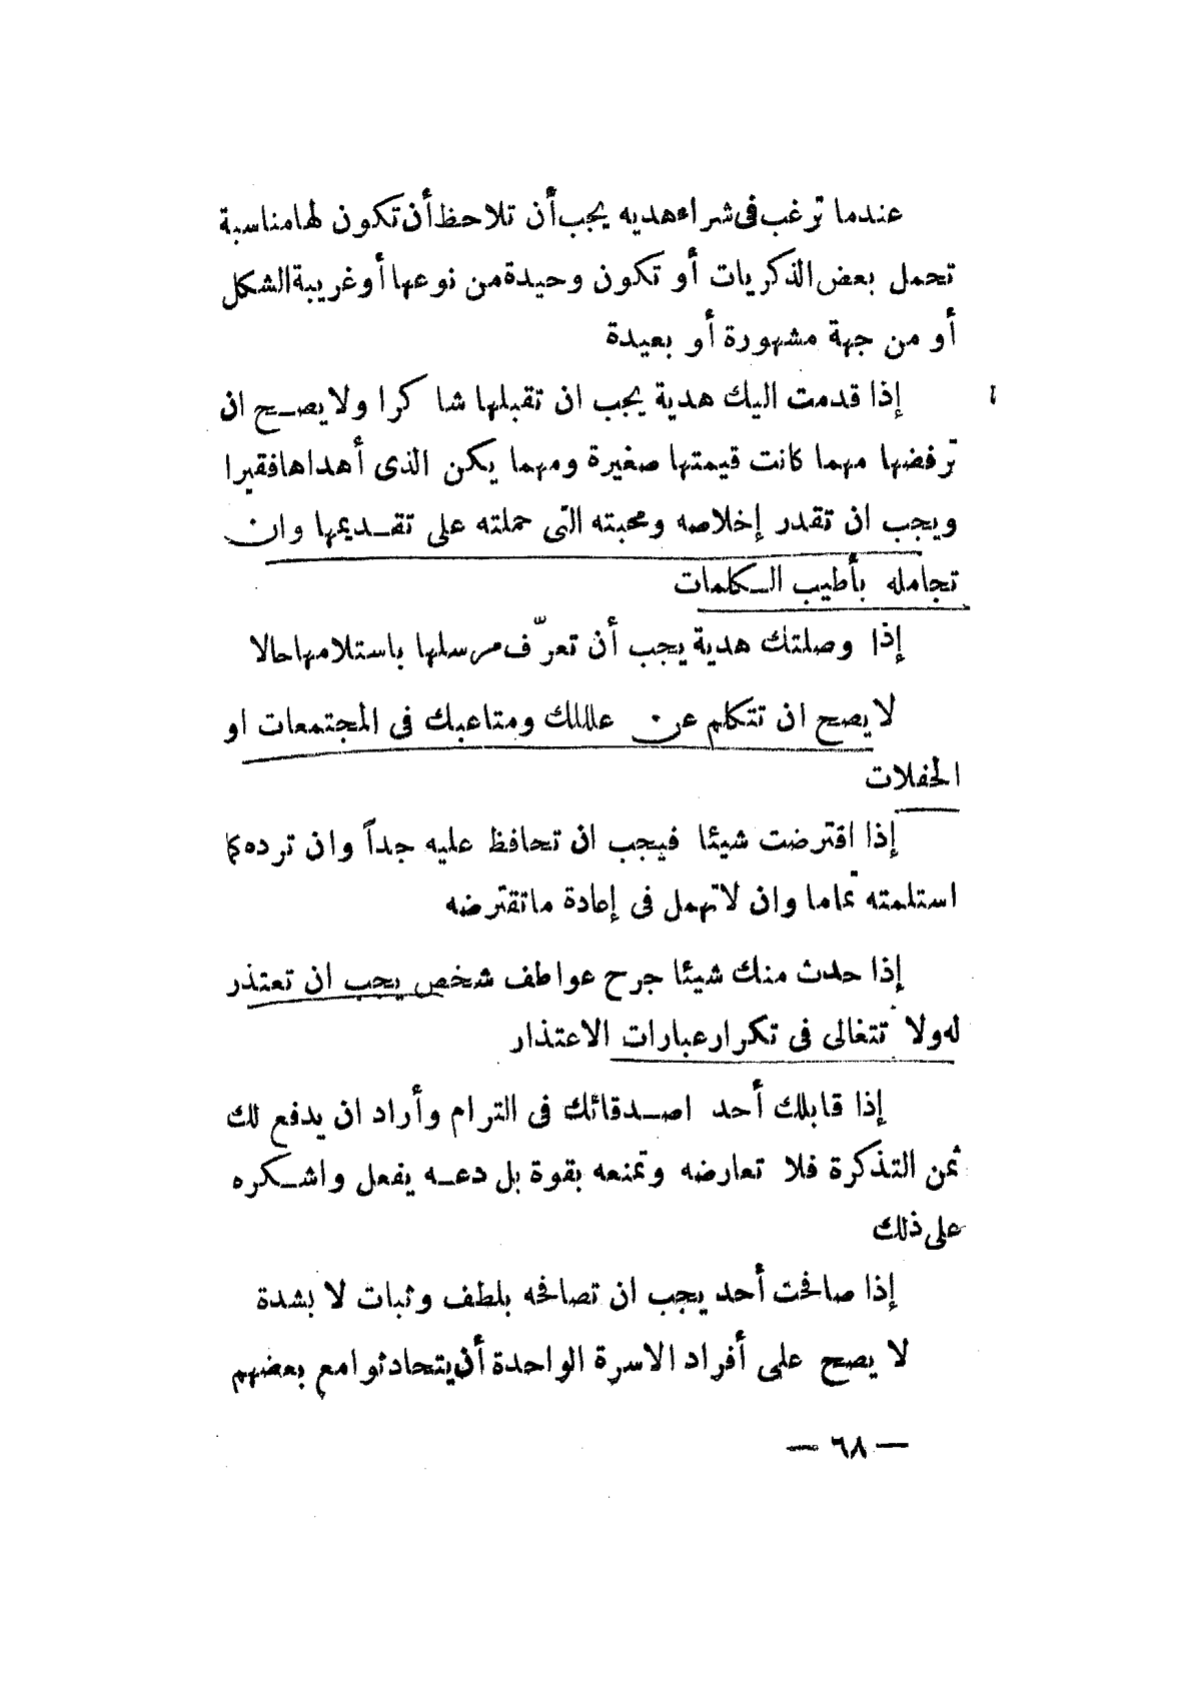 عندما ترغب فى شراء هديه يجب أن تلاحظ أن تكون لها مناسبة
تحمل بعض الذكريات أو تكون وحيدة من نوعها أو غريبة الشكل
أو من جهة مشهورة أو بعيدة
إذا قدمت اليك هدية يجب ان تقبلها شاكرا ولا يصح ان
ترفضها مهما كانت قيمتها صغيرة ومهما يكن الذى أهداها فقيرا
ويجب ان تقدر إخلاصه ومحبته التى حملته على تقديمها وان
تجامله بأطيب الكلمات
إذا وصلتك هدية يجب أن تعرّف مرسلها باستلامها حالا
لا يصح ان تتكلم عن عللك ومتاعبك فى المجتمعات او
الحفلات
إذا اقترضت شيئا فيجب ان تحافظ عليه جداً وان ترده كما
استلمته تماما وان لا تهمل فى إعادة ما تقترضه
إذا حدث منك شيئا جرح عواطف شخص يجب ان تعتذر
له ولا تتغالى فى تكرار عبارات الاعتذار
إذا قابلك أحد اصدقائك فى الترام وأراد ان يدفع لك
ثمن التذكرة فلا تعارضه وتمنعه بقوة بل دعه يفعل واشكره
على ذلك
إذا صافحت أحد يجب ان تصافحه بلطف وثبات لا بشدة
لا يصح على أفراد الاسرة الواحدة أن يتحادثوا مع بعضهم
— ٦٨ —